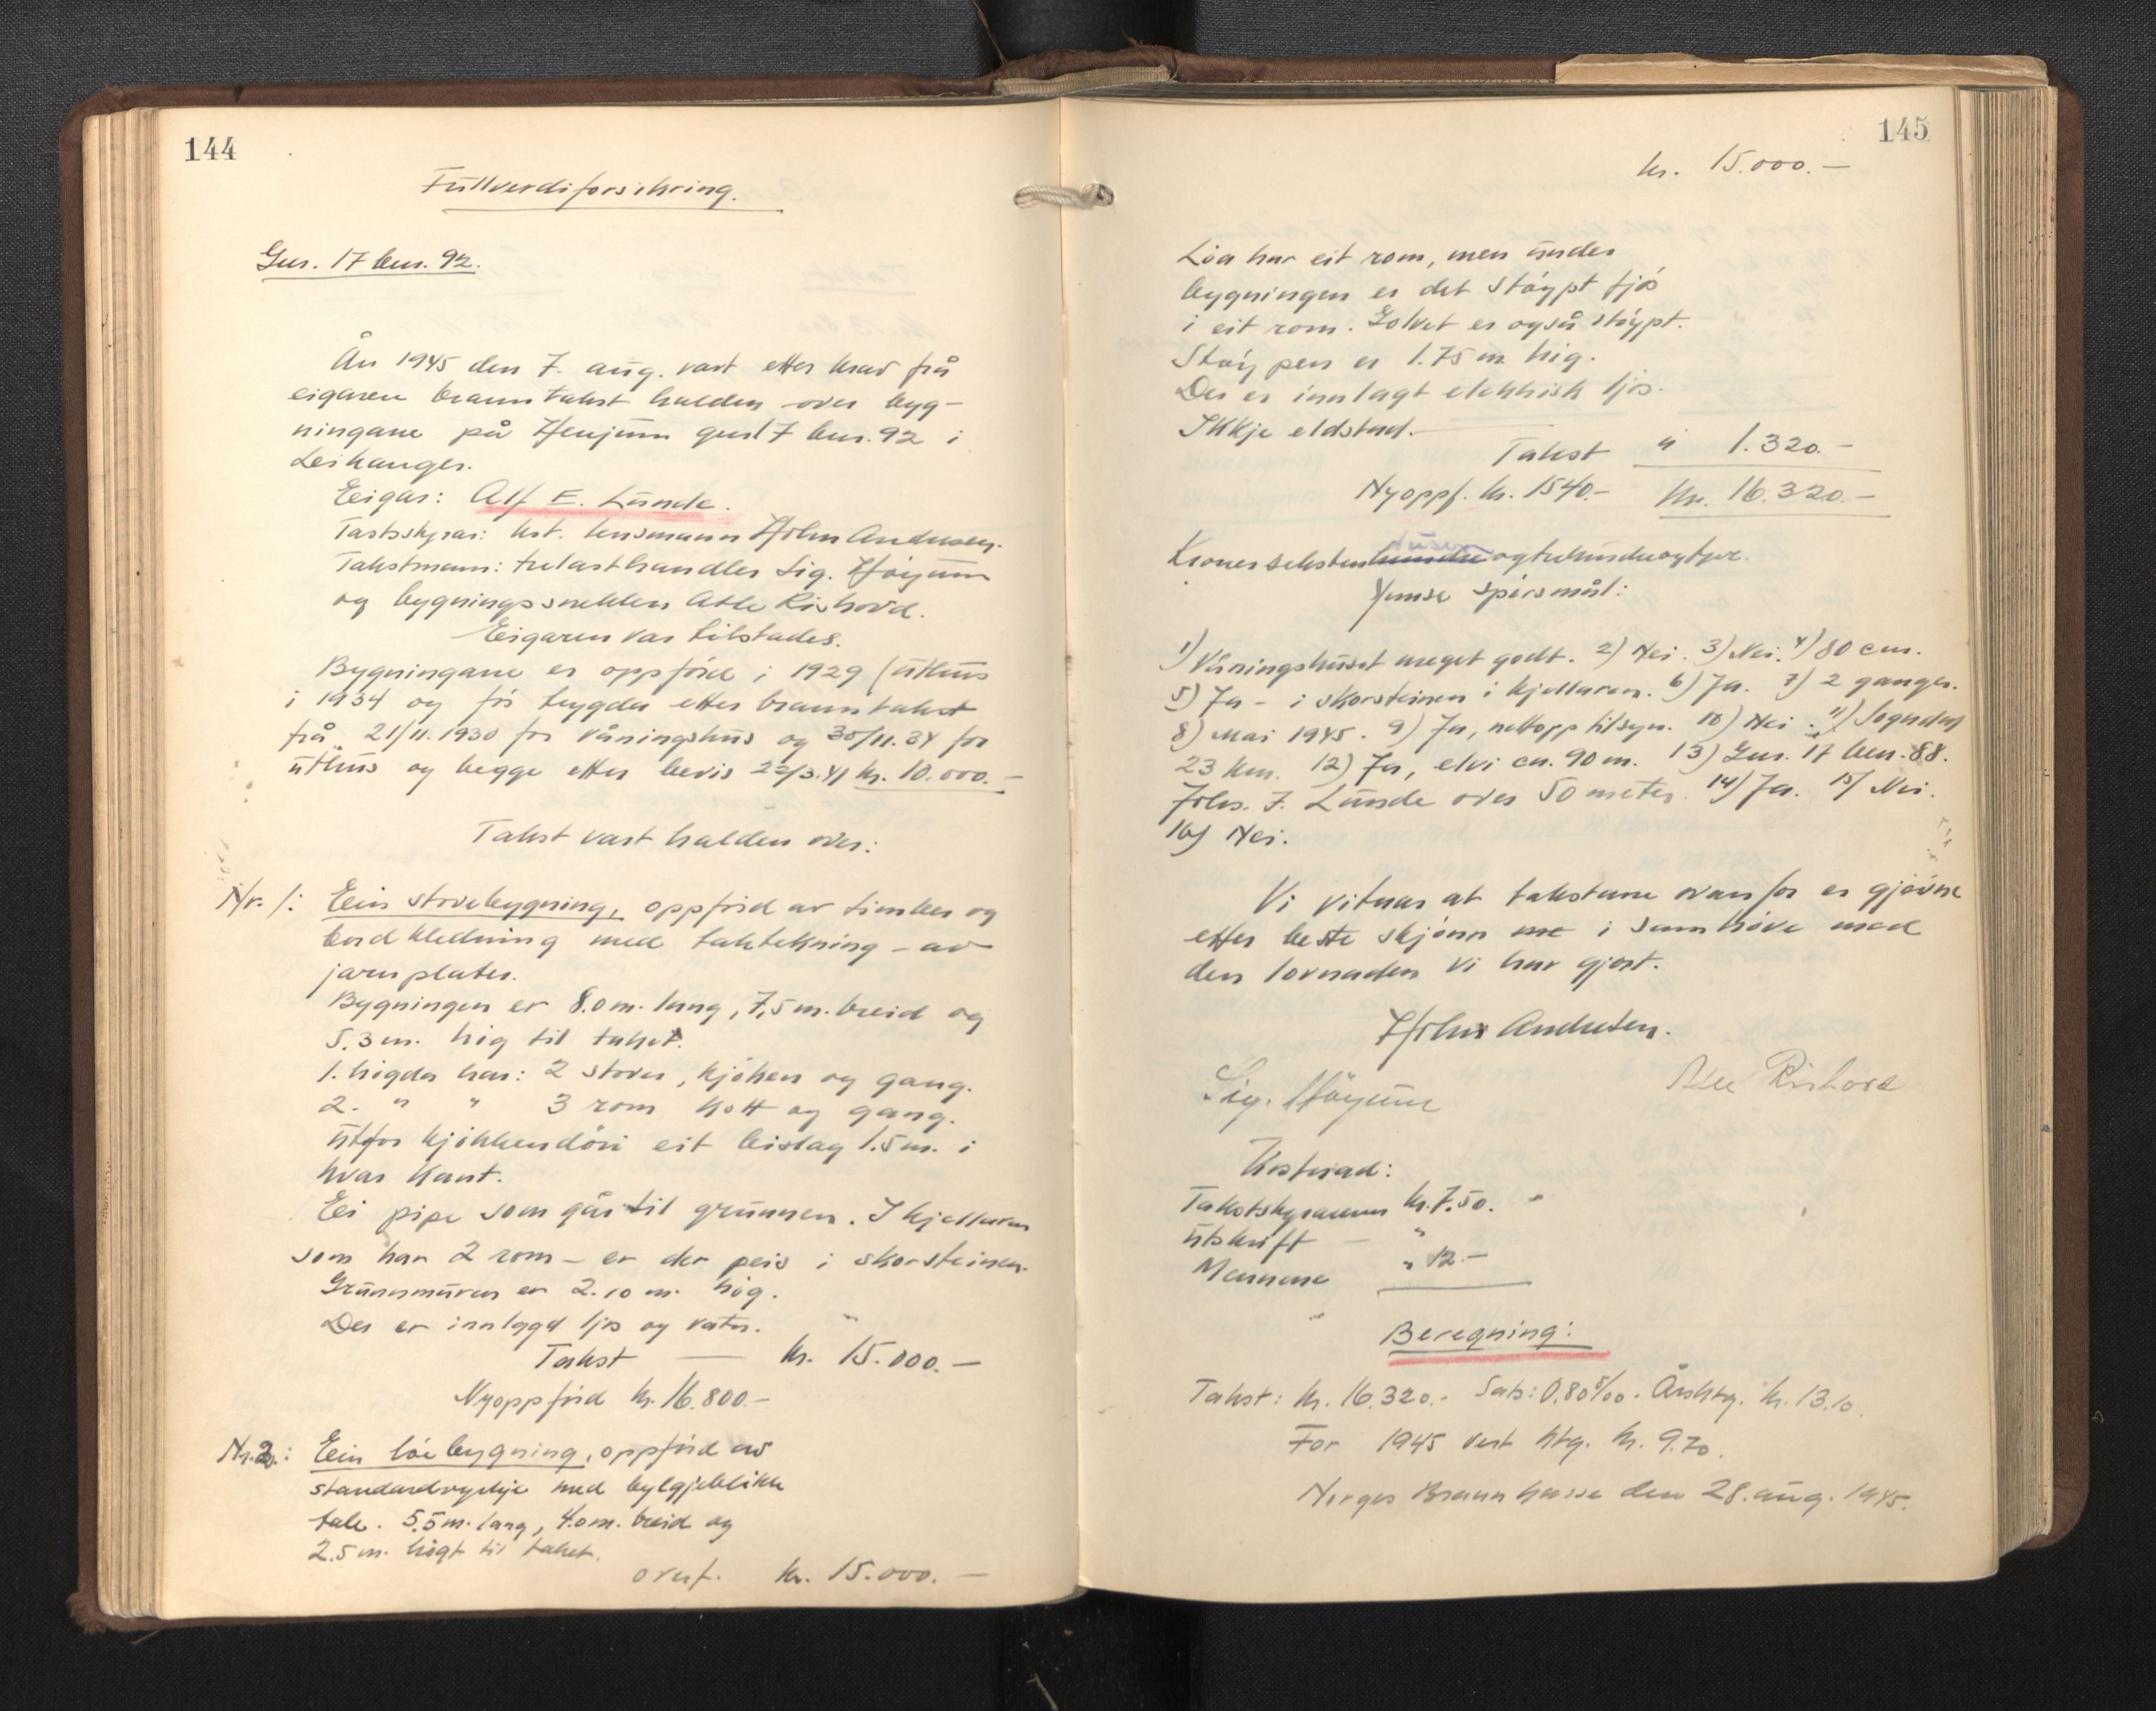 144
Fullverdiforsikring.
Gnr. 17 bnr. 92.
År 1945 den 7. aug. vart etter krav frå
eigaren branntakst halden over byg-
ningane på Henjum gnr 17 bnr. 92 i
Leikanger.
Eigar: Alf E. Lunde.
Takstskyrar: kst. lensmann Holm Andersen.
Takstmenn: trelasthandler Sig. Høyum
og bygningssnekker Atle Rishovd.
Eigaren var tilstades.
Bygningane er oppførd i 1929 (uthus
i 1934 og før trygda etter branntakst
frå 21/11.1930 for våningshus og 30/11.34 for
uthus og begge etter bevis 22/3.41 kr. 10.000.-
Takst vart halden over:
Nr. 1: Ein stovebygning, oppførd av timber og
bordkledning med taktekning - av
jarnplater.
Bygningen er 8.0 m. lang, 7,5 m. breid og
5.3 m. høg til taket.
1. høgda har: 2 stover, kjøken og gang.
2. " " 3 rom kott og gang.
Utfor kjøkkendøri eit bislag 1.5 m. i
kvar kant.
Ei pipe som går til grunnen. I kjellaren
som har 2 rom - er der peis i skorsteinen.
Grunnmuren er 2.10 m. høg.
Der er innlagd ljos og vatn.
Takst — kr. 15.000.-
Nyoppførd kr. 16.800.-
Nr. 2.: Ein løebygning, oppførd av
standardreplje med bylgjeblikk
tak. 5.5 m. lang, 4.0 m. breid og
2.5 m. høgt til taket.
overf. kr. 15.000.-
145
kr. 15.000.-
Løa har eit rom, men under
bygningen er det støypt fjøs
i eit rom. Golvet er også støypt.
Støypen er 1.75 m. høg.
Der er innlagt elektrisk ljos.
Ikkje eldstad.
Takst " 1.320.-
Nyoppf. kr. 1540.- kr. 16.320.-
tusen
Kroner seksten hundre og trehundreogtjue.
Ymse spørsmål:
1) Våningshuset meget godt. 2) Nei. 3) Nei. 4) 80 cm.
5) Ja - i skorsteinen i kjellaren. 6) Ja. 7) 2 ganger.
8) Mai 1945. 9) Ja, nettopp tilsyn. 10) Nei. 11) Sogndal
23 km. 12) Ja, elvi ca. 90 m. 13) Gnr. 17 bnr. 88.
Johs. J. Lunde over 50 meter. 14) Ja. 15) Nei.
16) Nei.
Vi vitnar at takstane ovanfor er gjevne
etter beste skjønn me i samhøve med
den lovnaden vi har gjort.
Holm Andersen.
Sig. Høyum Atle Rishovd
Kostnad:
Takstskyraren kr. 7.50.
Utskrift — "
Mennene " 12.-
Beregning:
Takst: kr. 16.320.- Sats: 0.80 o/oo. Årsktg. kr. 13.10.
For 1945 vert ktg. kr. 9.70.
Norges Brannkasse den 28. aug. 1945.